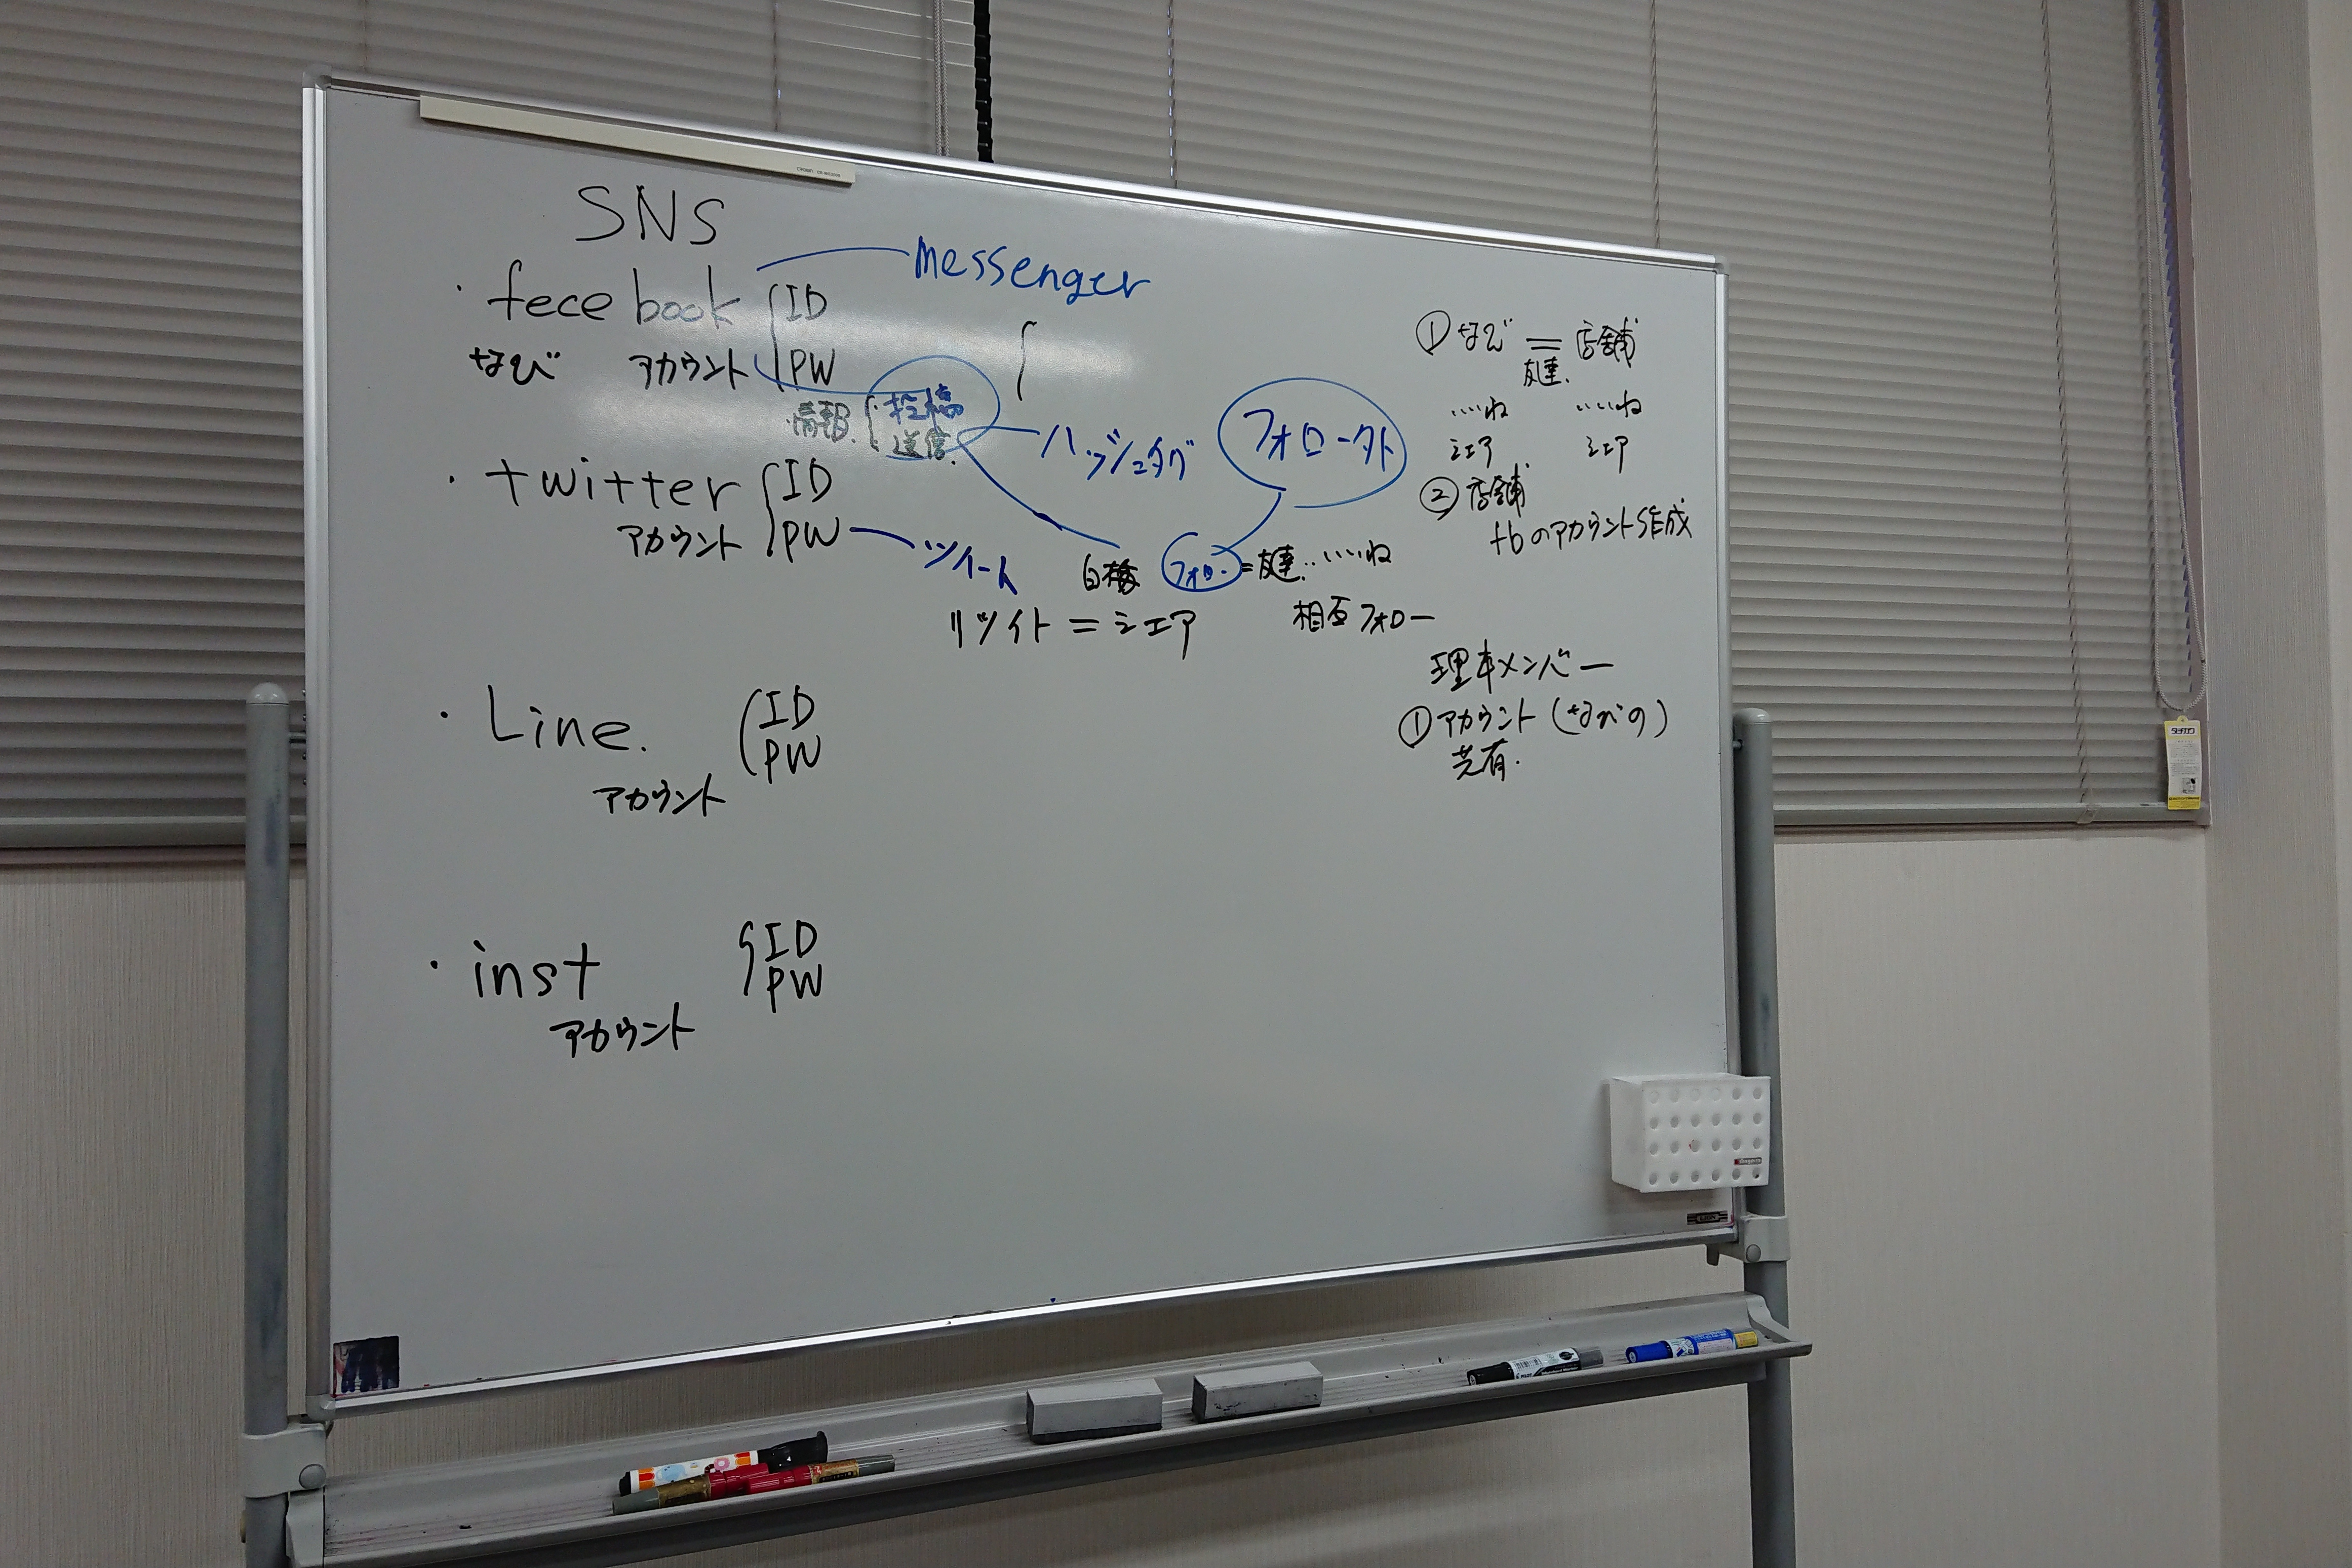 SNS
messenger
・fecebook ID
なび アカウント PW
情報 投稿
送信.
ハッシュタグ
フォロー外
・twitter ID
アカウント PW
ツイート
フォロー = 友達..いいね
リツイト = シェア
相互フォロー
・Line. ID
PW
アカウント
・inst ID
PW
アカウント
① なび = 店舗
友達.
いいね いいね
シェア シェア
② 店舗
fbのアカウント作成
理事メンバー
① アカウント (なびの)
共有.